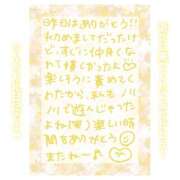 昨日はありがとう!!
初めましてだったけ
ど、すぐに仲良くな
れて嬉しかったよ
楽しそうに責めてく
れたから、まんもノリ
ノリで遊んじゃった
よね(笑)楽しい時
間をありがとう
またねー